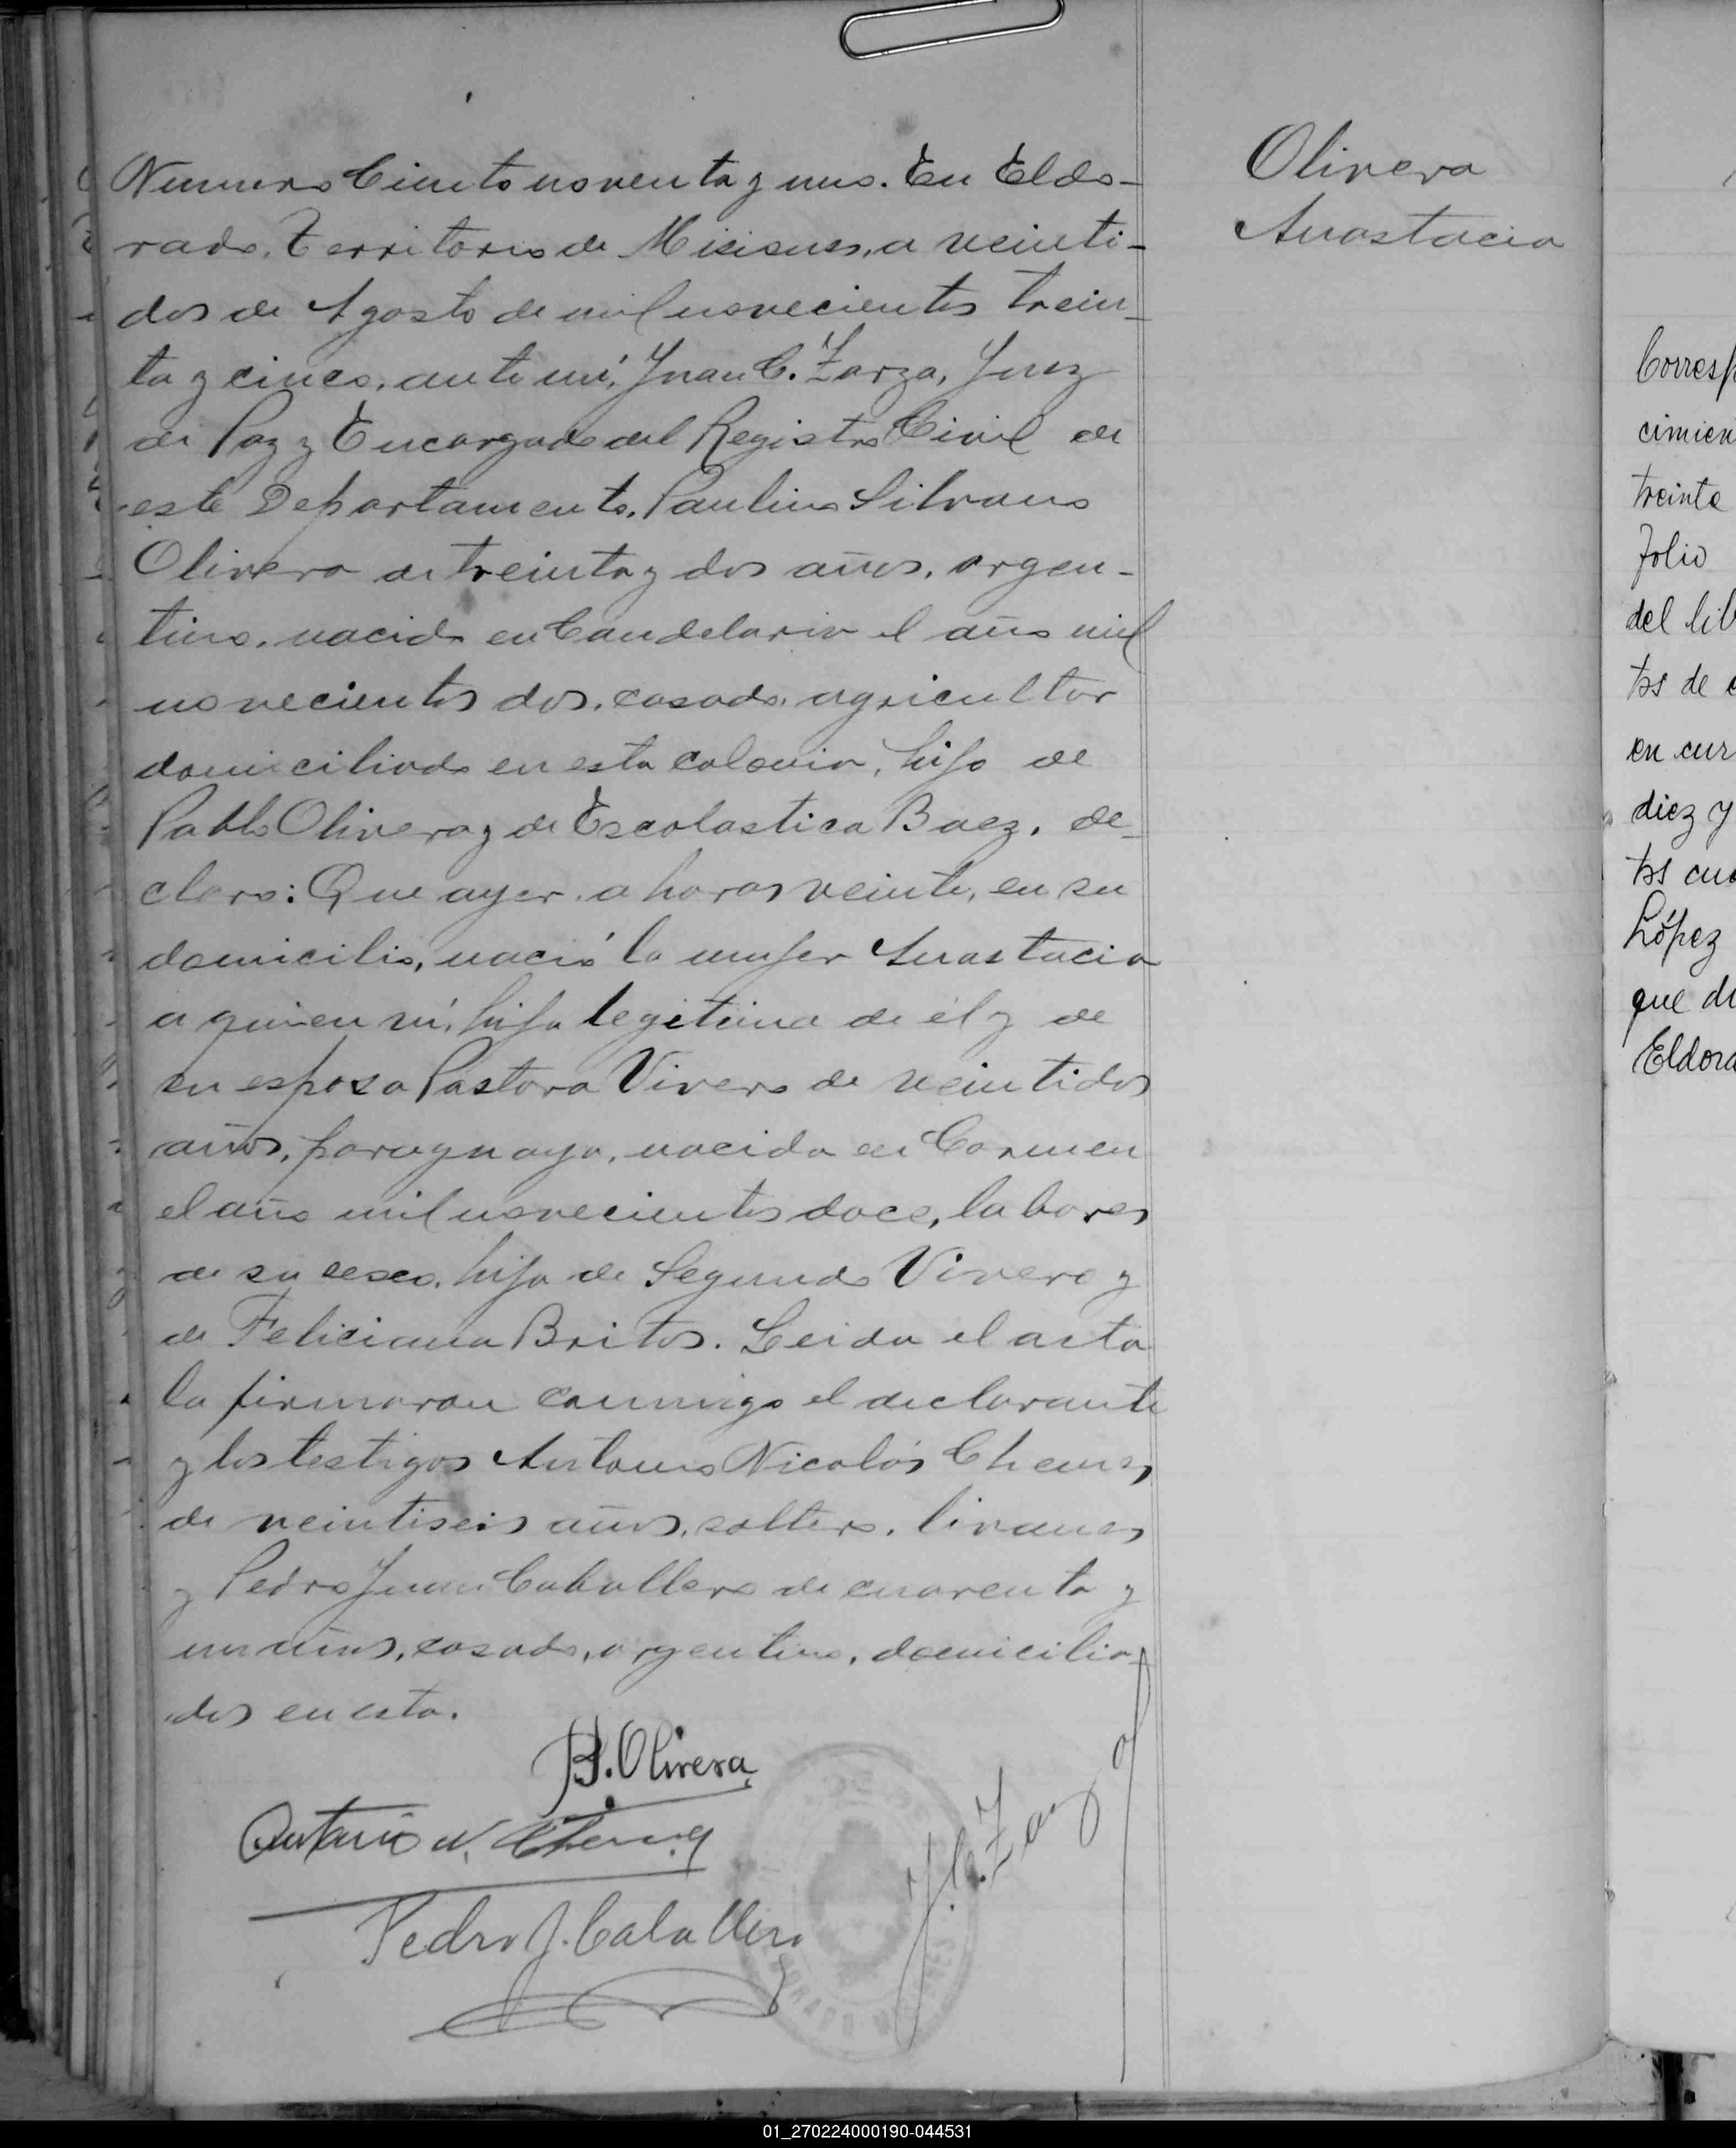 Numero Ciento noventa y uno. En Eldo-
rado, Territorio de Misiones, a veinti-
dos de Agosto de mil novecientos trein-
ta y cinco, ante mí, Juan C. Zarza, Juez
de Paz y Encargado del Registro Civil de
este Departamento, Paulino Silvano
Olivera de treinta y dos años, argen-
tino, nacido en Candelaria el año mil
novecientos dos, casado, agricultor
domiciliado en esta colonia, hijo de
Pablo Olivera y de Escolastica Baez, de-
claro: Que ayer a horas veinte, en su
domicilio, nació la mujer Anastacia
a quien vi, hija legitima de él y de
su esposa Pastora Vivero de veintidos
años, paraguaya, nacida en Carmen
el año mil novecientos doce, labores
de su sexo, hija de Segundo Vivero y
de Feliciana Britos. Leida el acta
la firmaron conmigo el declarante
y los testigos Antonio Nicolás
de veintiseis años, soltero, livanes
y Pedro Juan Caballero de cuarenta y
un años, casado, argentino, domicilia-
dos en esta.
Olivera
Antonio N.
Pedro J. Caballero
J. C. Zarza
Olivera
Anastacia
Corresp
cimien
treinta
folio
del lib
tos de c
en cur
diez y
tos cua
López
que di
Eldora
01_270224000190-044531